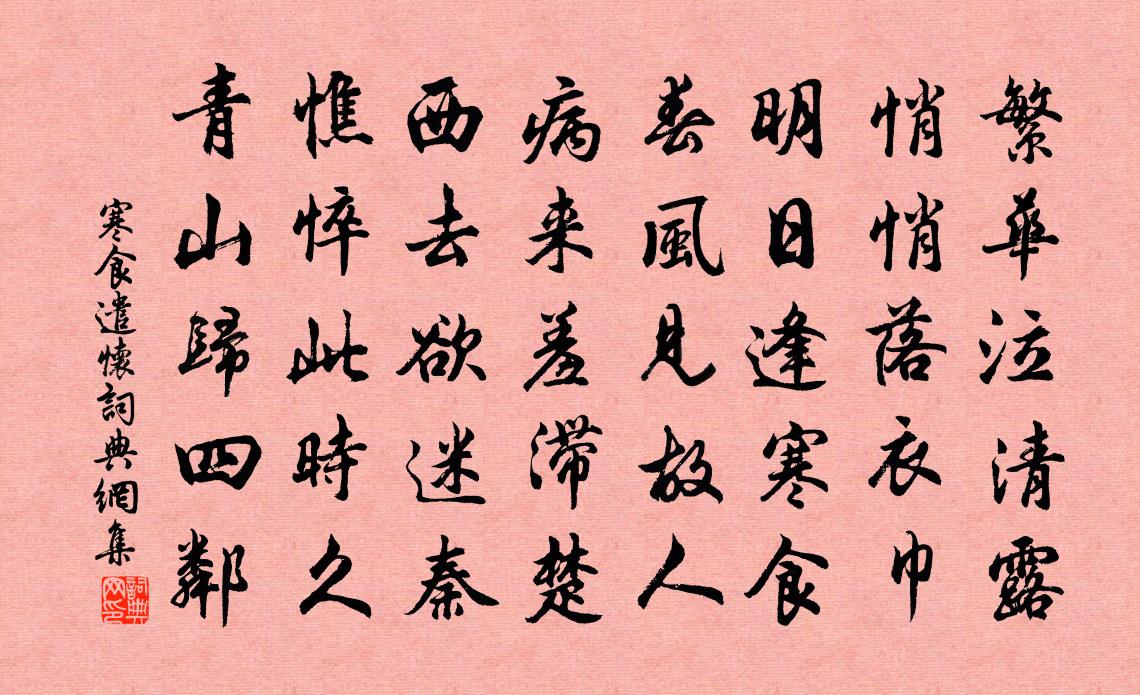 繁華泣清露
悄悄落衣巾
明日逢寒食
春風見故人
病来羞滞楚
西去欲迷秦
憔悴此時久
青山歸四鄰
寒食遣懷詞典網集
詞典網印